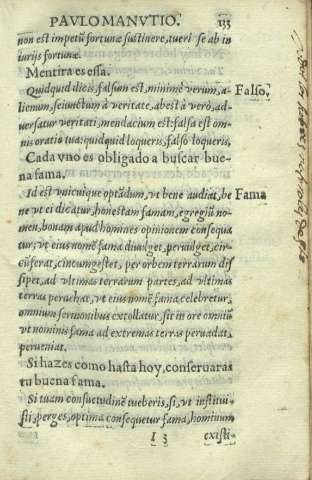 PAVLO MANVTIO. 133
non est impetũ fortunæ sustinere, tueri se ab in
iurijs fortunæ.
Mentira es essa.
Quidquid dicis, falsum est, minimè verum, a- Falso.
lienum, seiunctum à veritate, abest à vero, ad-
uersatur veritati, mendacium est: falsa est om-
nis oratio tua: quidquid loqueris, falsò loqueris,
Cada vno es obligado a buscar bue-
na fama.
Id est vnicuique optãdum, vt bene audiat, be Fama
ne vt ei dicatur, honestam famam, egregiũ no-
men, bonam apud homines opinionem consequa
tur, vt eius nomẽ fama diuulget, peruulget, cir-
cũferat, circumgestet, per orbem terrarum dis
sipet, ad vltimas terrarum partes, ad vltimas
terras peruehat, vt eius nomẽ fama celebretur,
omnium sermonibus extollatur, sit in ore omniũ
vt nominis fama ad extremas terras peruadat,
perueniat.
Si hazes como hasta hoy, conseruaras
tu buena fama.
Si tuam consuetudinẽ tueberis, si, vt institui-
sti, perges, optima consequetur fama, hominum
I 3 existi-